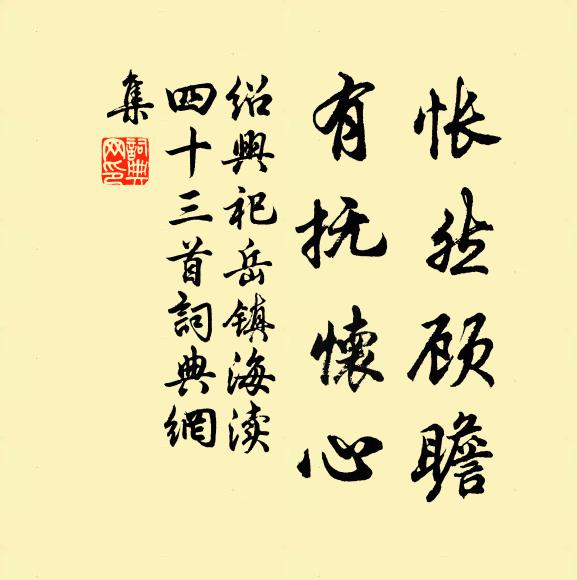 怅然顾瞻
有抚懷心
绍興祀岳镇海渎
四十三首詞典網
集
詞典
网印